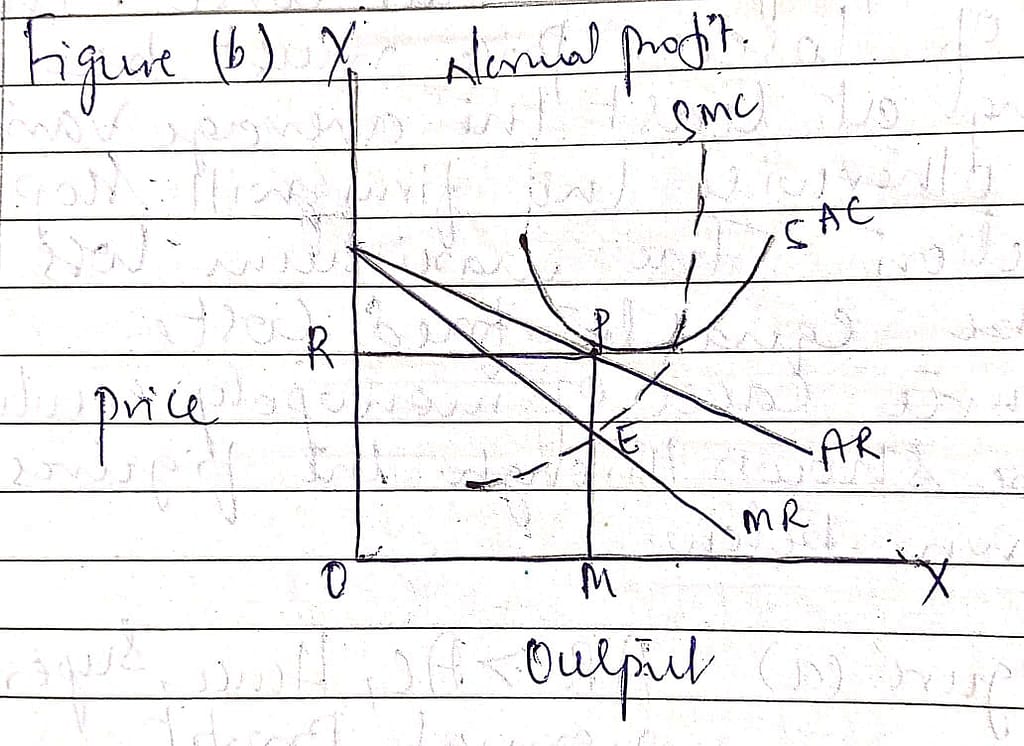 Figure (b) Y Normal profit.
SMC
SAC
P
R
price
E
AR
MR
O M X
Output